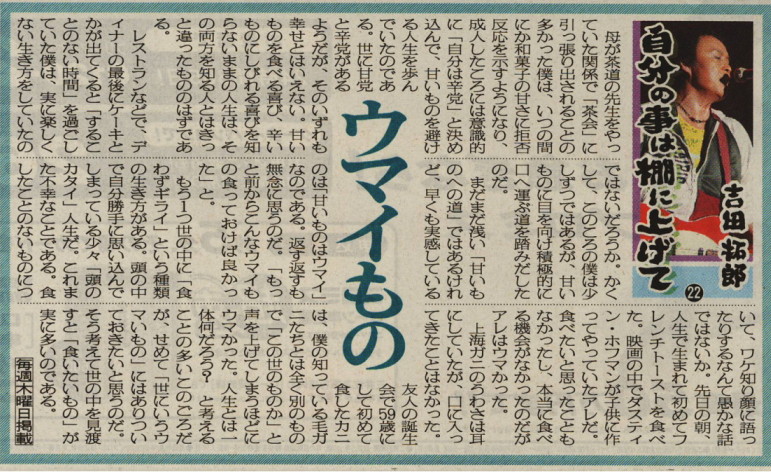 自分の事は棚に上げて
吉田拓郎
22
ウマイもの
母が茶道の先生をやっ
ていた関係で「茶会」に
引っ張り出されることの
多かった僕は、いつの間
にか和菓子の甘さに拒否
反応を示すようになり、
成人したころには意識的
に「自分は辛党」と決め
込んで、甘いものを避け
る人生を歩ん
でいたのであ
る。世に甘党
と辛党がある
ようだが、そのいずれも
幸せとはいえない。甘い
ものを食べる喜び、辛い
ものにしびれる喜びを知
らないままの人生は、そ
の両方を知る人とはきっ
と違ったもののはずであ
る。
レストランなどで、デ
ィナーの最後にケーキと
かが出てくると「するこ
とのない時間」を過ごし
ていた僕は、実に楽しく
ない生き方をしていたの
ではないだろうか。かく
して、このごろの僕は少
しずつではあるが、甘い
ものに目を向け積極的に
口へ運ぶ道を踏みだした
のだ。
まだまだ浅い「甘いも
のへの道」ではあるけれ
ど、早くも実感している
のは「甘いものはウマイ」
なのである。返す返すも
無念に思うのだ。「もっ
と前からこんなウマイも
の食っておけば良かっ
た」と。
もう一つ世の中に「食
わずギライ」という種類
の生き方がある。頭の中
で自分勝手に思い込んで
しまっている少々「頭の
カタイ」人生だ。これま
た不幸なことである。食
したことのないものにつ
いて、ワケ知り顔に語っ
たりするなんて愚かな話
ではないか。先日の朝、
人生で生まれて初めてフ
レンチトーストを食べ
た。映画の中でダスティ
ン・ホフマンが子供に作
ってやっていたアレだ。
食べたいと思ったことも
なかったし、本当に食べ
る機会がなかったのだが
アレはウマかった。
上海ガニのうわさは耳
にしていたが、口に入っ
てきたことはなかった。
友人の誕生
会で59歳に
して初めて
食したカニ
は、僕の知っている毛ガ
ニたちとは全く別のもの
で「この世のものか」と
声を上げてしまうほどに
ウマかった。人生とは一
体何だろう?と考える
ことの多いこのごろだ
が、せめて「世にいうウ
マいもの」にはありつい
ておきたいと思うのだ。
そう考えて世の中を見渡
すと「食いたいもの」が
実に多いのである。
毎週木曜日掲載